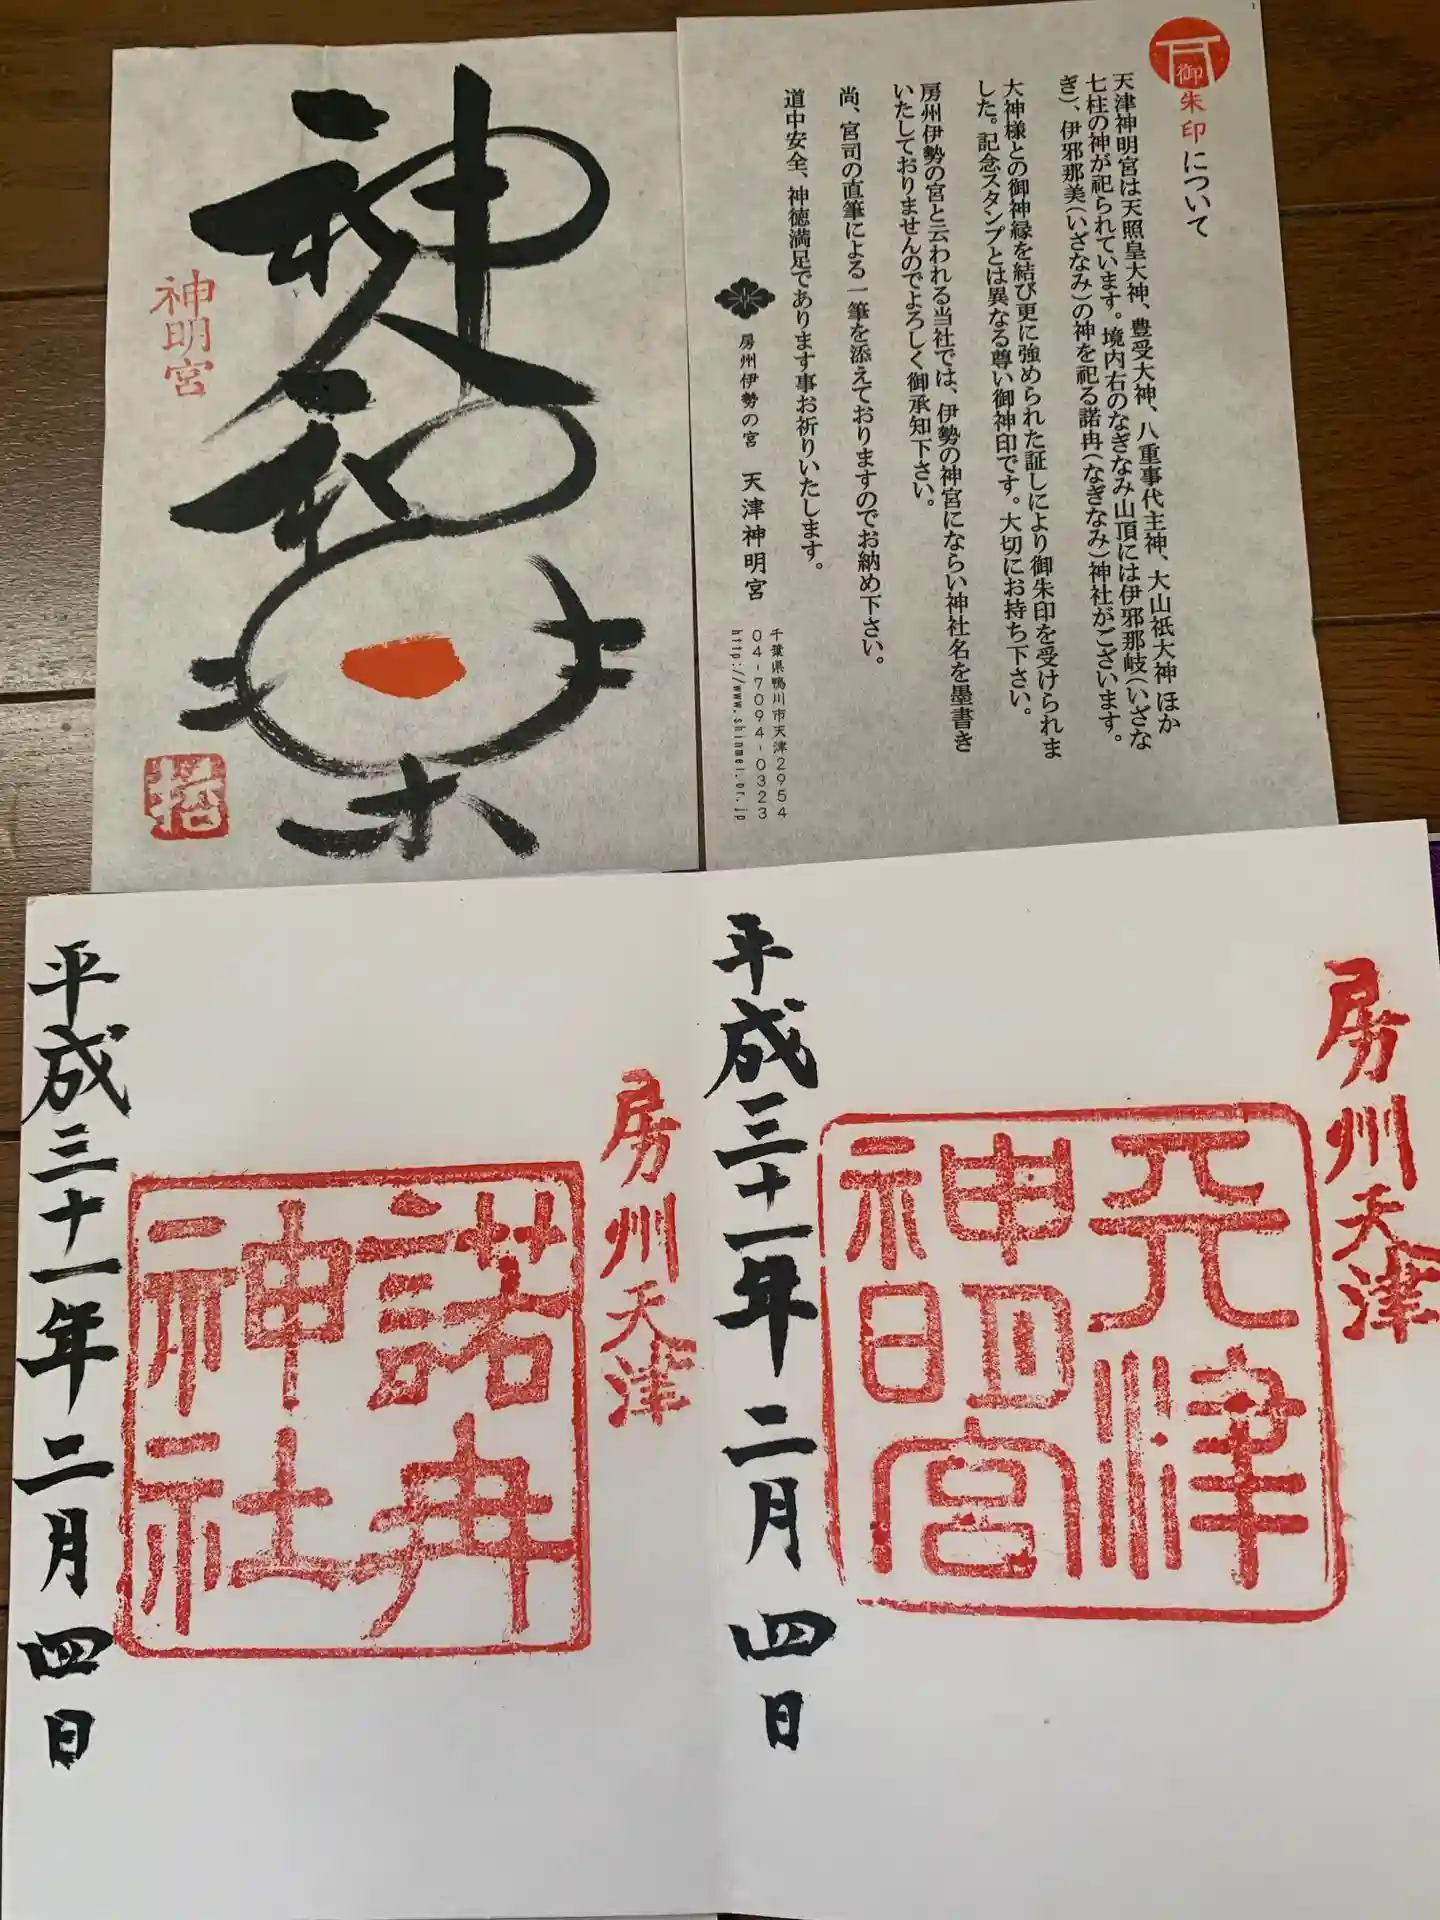 御朱印について
天津神明宮は天照皇大神、豊受大神、八重事代主神、大山祇大神 ほか
七柱の神が祀られています。境内右のなぎなみ山頂には伊邪那岐(いざな
ぎ)、伊邪那美(いざなみ)の神を祀る諾冉(なぎなみ)神社がございます。
大神様との御神縁を結び更に強められた証しにより御朱印を受けられま
した。記念スタンプとは異なる尊い御神印です。大切にお持ち下さい。
房州伊勢の宮と云われる当社では、伊勢の神宮にならい神社名を墨書き
いたしておりませんのでよろしく御承知下さい。
尚、宮司の直筆による一筆を添えておりますのでお納め下さい。
道中安全、神徳満足であります事お祈りいたします。
房州伊勢の宮 天津神明宮
千葉県鴨川市天津2954
04-7094-0323
http://www.shinmei.or.jp
神
和
楽
神明宮
房州天津
天津
神明宮
平成三十一年二月四日
房州天津
諾冉
神社
平成三十一年二月四日